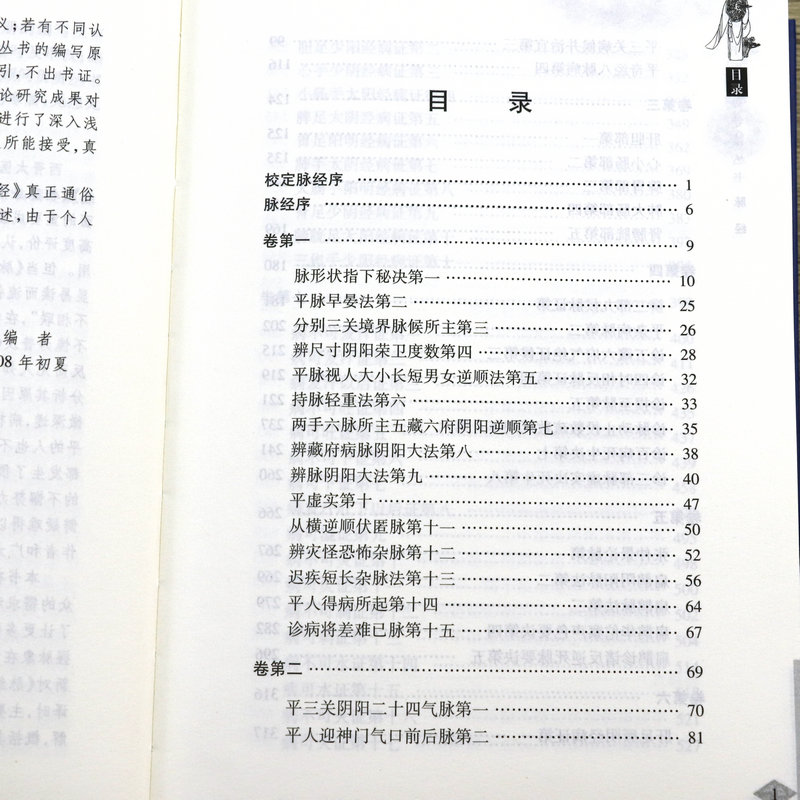 义；若有不同认
丛书的编写原
引，不出书证。
论研究成果对
进行了深入浅
所能接受，真
经》真正通俗
述，由于个人
编 者
08 年初夏
目录
目 录
校定脉经序 …… 1
脉经序 …… 6
卷第一 …… 9
脉形状指下秘决第一 …… 10
平脉早晏法第二 …… 25
分别三关境界脉候所主第三 …… 26
辨尺寸阴阳荣卫度数第四 …… 28
平脉视人大小长短男女逆顺法第五 …… 32
持脉轻重法第六 …… 33
两手六脉所主五藏六府阴阳逆顺第七 …… 35
辨藏府病脉阴阳大法第八 …… 38
辨脉阴阳大法第九 …… 40
平虚实第十 …… 47
从横逆顺伏匿脉第十一 …… 50
辨灾怪恐怖杂脉第十二 …… 52
迟疾短长杂脉法第十三 …… 56
平人得病所起第十四 …… 64
诊病将差难已脉第十五 …… 67
卷第二 …… 69
平三关阴阳二十四气脉第一 …… 70
平人迎神门气口前后脉第二 …… 81
1